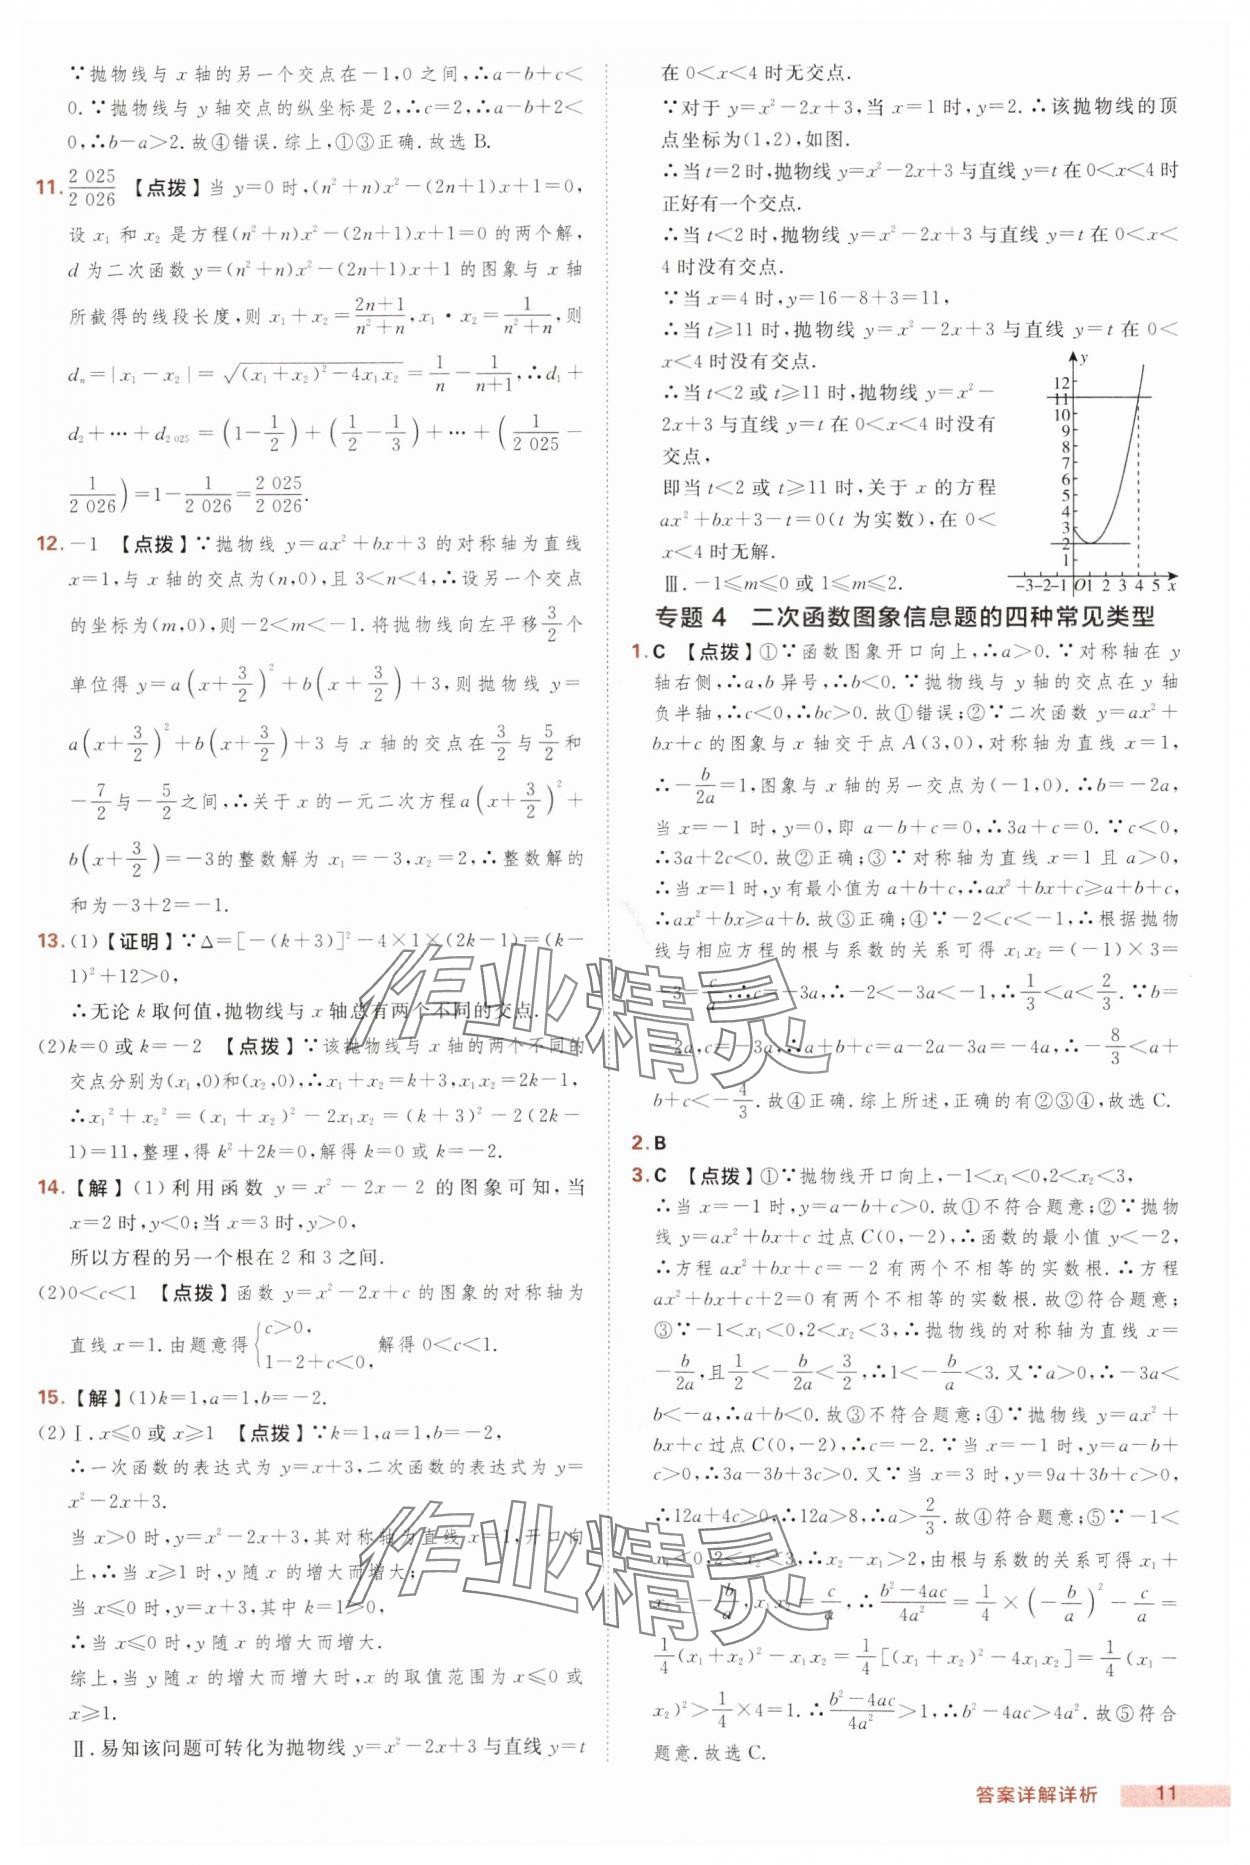 ∵抛物线与 x 轴的另一个交点在-1,0 之间,∴a-b+c<
0.∵抛物线与 y 轴交点的纵坐标是 2,∴c=2,∴a-b+2<
0,∴b-a>2.故④错误.综上,①③正确.故选 B.
11. 2 025/2 026 【点拨】当 y=0 时,(n²+n)x²-(2n+1)x+1=0,
设 x₁ 和 x₂ 是方程(n²+n)x²-(2n+1)x+1=0 的两个解,
d 为二次函数 y=(n²+n)x²-(2n+1)x+1 的图象与 x 轴
所截得的线段长度,则 x₁+x₂=(2n+1)/(n²+n),x₁·x₂=1/(n²+n),则
dₙ=|x₁-x₂|=√((x₁+x₂)²-4x₁x₂)=1/n-1/(n+1),∴d₁+
d₂+…+d₂ ₀₂₅=(1-1/2)+(1/2-1/3)+…+(1/2 025-
1/2 026)=1-1/2 026=2 025/2 026.
12. -1 【点拨】∵抛物线 y=ax²+bx+3 的对称轴为直线
x=1,与 x 轴的交点为(n,0),且 3<n<4,∴设另一个交点
的坐标为(m,0),则-2<m<-1.将抛物线向左平移3/2个
单位得 y=a(x+3/2)²+b(x+3/2)+3,则抛物线 y=
a(x+3/2)²+b(x+3/2)+3 与 x 轴的交点在3/2与5/2和
-7/2与-5/2之间,∴关于 x 的一元二次方程a(x+3/2)²+
b(x+3/2)=-3的整数解为 x₁=-3,x₂=2,∴整数解的
和为-3+2=-1.
13. (1)【证明】∵Δ=[-(k+3)]²-4×1×(2k-1)=(k-
1)²+12>0,
∴无论 k 取何值,抛物线与 x 轴总有两个不同的交点.
(2)k=0 或 k=-2 【点拨】∵该抛物线与 x 轴的两个不同的
交点分别为(x₁,0)和(x₂,0),∴x₁+x₂=k+3,x₁x₂=2k-1,
∴x₁²+x₂²=(x₁+x₂)²-2x₁x₂=(k+3)²-2(2k-
1)=11,整理,得 k²+2k=0,解得 k=0 或 k=-2.
14.【解】(1)利用函数 y=x²-2x-2 的图象可知,当
x=2 时,y<0;当 x=3 时,y>0,
所以方程的另一个根在 2 和 3 之间.
(2)0<c<1 【点拨】函数 y=x²-2x+c 的图象的对称轴为
直线 x=1.由题意得{c>0, 1-2+c<0, 解得 0<c<1.
15.【解】(1)k=1,a=1,b=-2.
(2)Ⅰ.x≤0 或 x≥1 【点拨】∵k=1,a=1,b=-2,
∴一次函数的表达式为 y=x+3,二次函数的表达式为 y=
x²-2x+3.
当 x>0 时,y=x²-2x+3,其对称轴为直线 x=1,开口向
上,∴当 x≥1 时,y 随 x 的增大而增大;
当 x≤0 时,y=x+3,其中 k=1>0,
∴当 x≤0 时,y 随 x 的增大而增大.
综上,当 y 随 x 的增大而增大时,x 的取值范围为 x≤0 或
x≥1.
Ⅱ.易知该问题可转化为抛物线 y=x²-2x+3 与直线 y=t
在 0<x<4 时无交点.
∵对于 y=x²-2x+3,当 x=1 时,y=2.∴该抛物线的顶
点坐标为(1,2),如图.
∴当 t=2 时,抛物线 y=x²-2x+3 与直线 y=t 在 0<x<4 时
正好有一个交点.
∴当 t<2 时,抛物线 y=x²-2x+3 与直线 y=t 在 0<x<
4 时没有交点.
∵当 x=4 时,y=16-8+3=11,
∴当 t≥11 时,抛物线 y=x²-2x+3 与直线 y=t 在 0<
x<4 时没有交点.
∴当 t<2 或 t≥11 时,抛物线 y=x²-
2x+3 与直线 y=t 在 0<x<4 时没有
交点,
即当 t<2 或 t≥11 时,关于 x 的方程
ax²+bx+3-t=0(t 为实数),在 0<
x<4 时无解.
Ⅲ.-1≤m≤0 或 1≤m≤2.
y
12
11
10
9
8
7
6
5
4
3
2
1
-3-2-1 O1 2 3 4 5 x
专题 4 二次函数图象信息题的四种常见类型
1. C 【点拨】①∵函数图象开口向上,∴a>0.∵对称轴在 y
轴右侧,∴a,b 异号,∴b<0.∵抛物线与 y 轴的交点在 y 轴
负半轴,∴c<0,∴bc>0.故①错误;②∵二次函数 y=ax²+
bx+c 的图象与 x 轴交于点 A(3,0),对称轴为直线 x=1,
∴-b/2a=1,图象与 x 轴的另一交点为(-1,0).∴b=-2a,
当 x=-1 时,y=0,即 a-b+c=0,∴3a+c=0.∵c<0,
∴3a+2c<0.故②正确;③∵对称轴为直线 x=1 且 a>0,
∴当 x=1 时,y 有最小值为 a+b+c,∴ax²+bx+c≥a+b+c,
∴ax²+bx≥a+b.故③正确;④∵-2<c<-1,∴根据抛物
线与相应方程的根与系数的关系可得 x₁x₂=(-1)×3=
-3=c/a,∴c=-3a,∴-2<-3a<-1,∴1/3<a<2/3.∵b=
-2a,c=-3a,∴a+b+c=a-2a-3a=-4a,∴-8/3<a+
b+c<-4/3.故④正确.综上所述,正确的有②③④,故选 C.
2. B
3. C 【点拨】①∵抛物线开口向上,-1<x₁<0,2<x₂<3,
∴当 x=-1 时,y=a-b+c>0.故①不符合题意;②∵抛物
线 y=ax²+bx+c 过点 C(0,-2),∴函数的最小值 y<-2,
∴方程 ax²+bx+c=-2 有两个不相等的实数根.∴方程
ax²+bx+c+2=0 有两个不相等的实数根.故②符合题意;
③∵-1<x₁<0,2<x₂<3,∴抛物线的对称轴为直线 x=
-b/2a,且1/2<-b/2a<3/2,∴1<-b/a<3.又∵a>0,∴-3a<
b<-a,∴a+b<0.故③不符合题意;④∵抛物线 y=ax²+
bx+c 过点 C(0,-2),∴c=-2.∵当 x=-1 时,y=a-b+
c>0,∴3a-3b+3c>0.又∵当 x=3 时,y=9a+3b+c>0,
∴12a+4c>0,∴12a>8,∴a>2/3.故④符合题意;⑤∵-1<
x₁<0,2<x₂<3,∴x₂-x₁>2,由根与系数的关系可得 x₁+
x₂=-b/a,x₁x₂=c/a,∴(b²-4ac)/4a²=1/4×(-b/a)²-c/a=
1/4(x₁+x₂)²-x₁x₂=1/4[(x₁+x₂)²-4x₁x₂]=1/4(x₁-
x₂)²>1/4×4=1.∴(b²-4ac)/4a²>1,∴b²-4ac>4a².故⑤符合
题意.故选 C.
答案详解详析 11
作业精灵
作业精灵